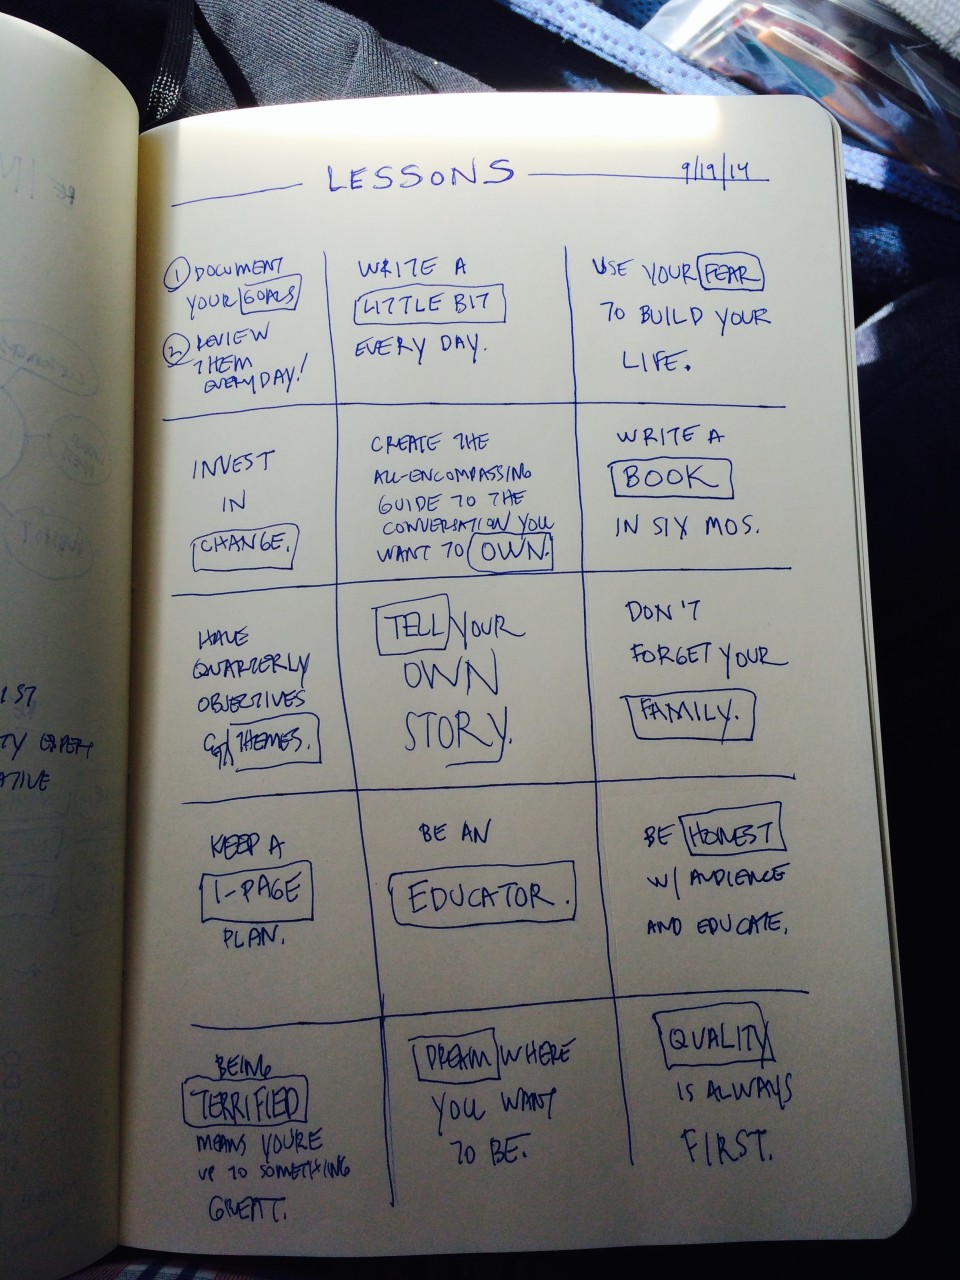 LESSONS
9/19/14
1 DOCUMENT
YOUR GOALS
2 REVIEW
THEM
EVERYDAY!
WRITE A
LITTLE BIT
EVERY DAY.
USE YOUR FEAR
TO BUILD YOUR
LIFE.
INVEST
IN
CHANGE.
CREATE THE
ALL-ENCOMPASSING
GUIDE TO THE
CONVERSATION YOU
WANT TO OWN.
WRITE A
BOOK
IN SIX MOS.
HAVE
QUARTERLY
OBJECTIVES
THEMES.
TELL YOUR
OWN
STORY.
DON'T
FORGET YOUR
FAMILY.
KEEP A
1-PAGE
PLAN.
BE AN
EDUCATOR.
BE HONEST
W/ AUDIENCE
AND EDUCATE.
BEING
TERRIFIED
MEANS YOU'RE
UP TO SOMETHING
GREAT.
DREAM WHERE
YOU WANT
TO BE.
QUALITY
IS ALWAYS
FIRST.